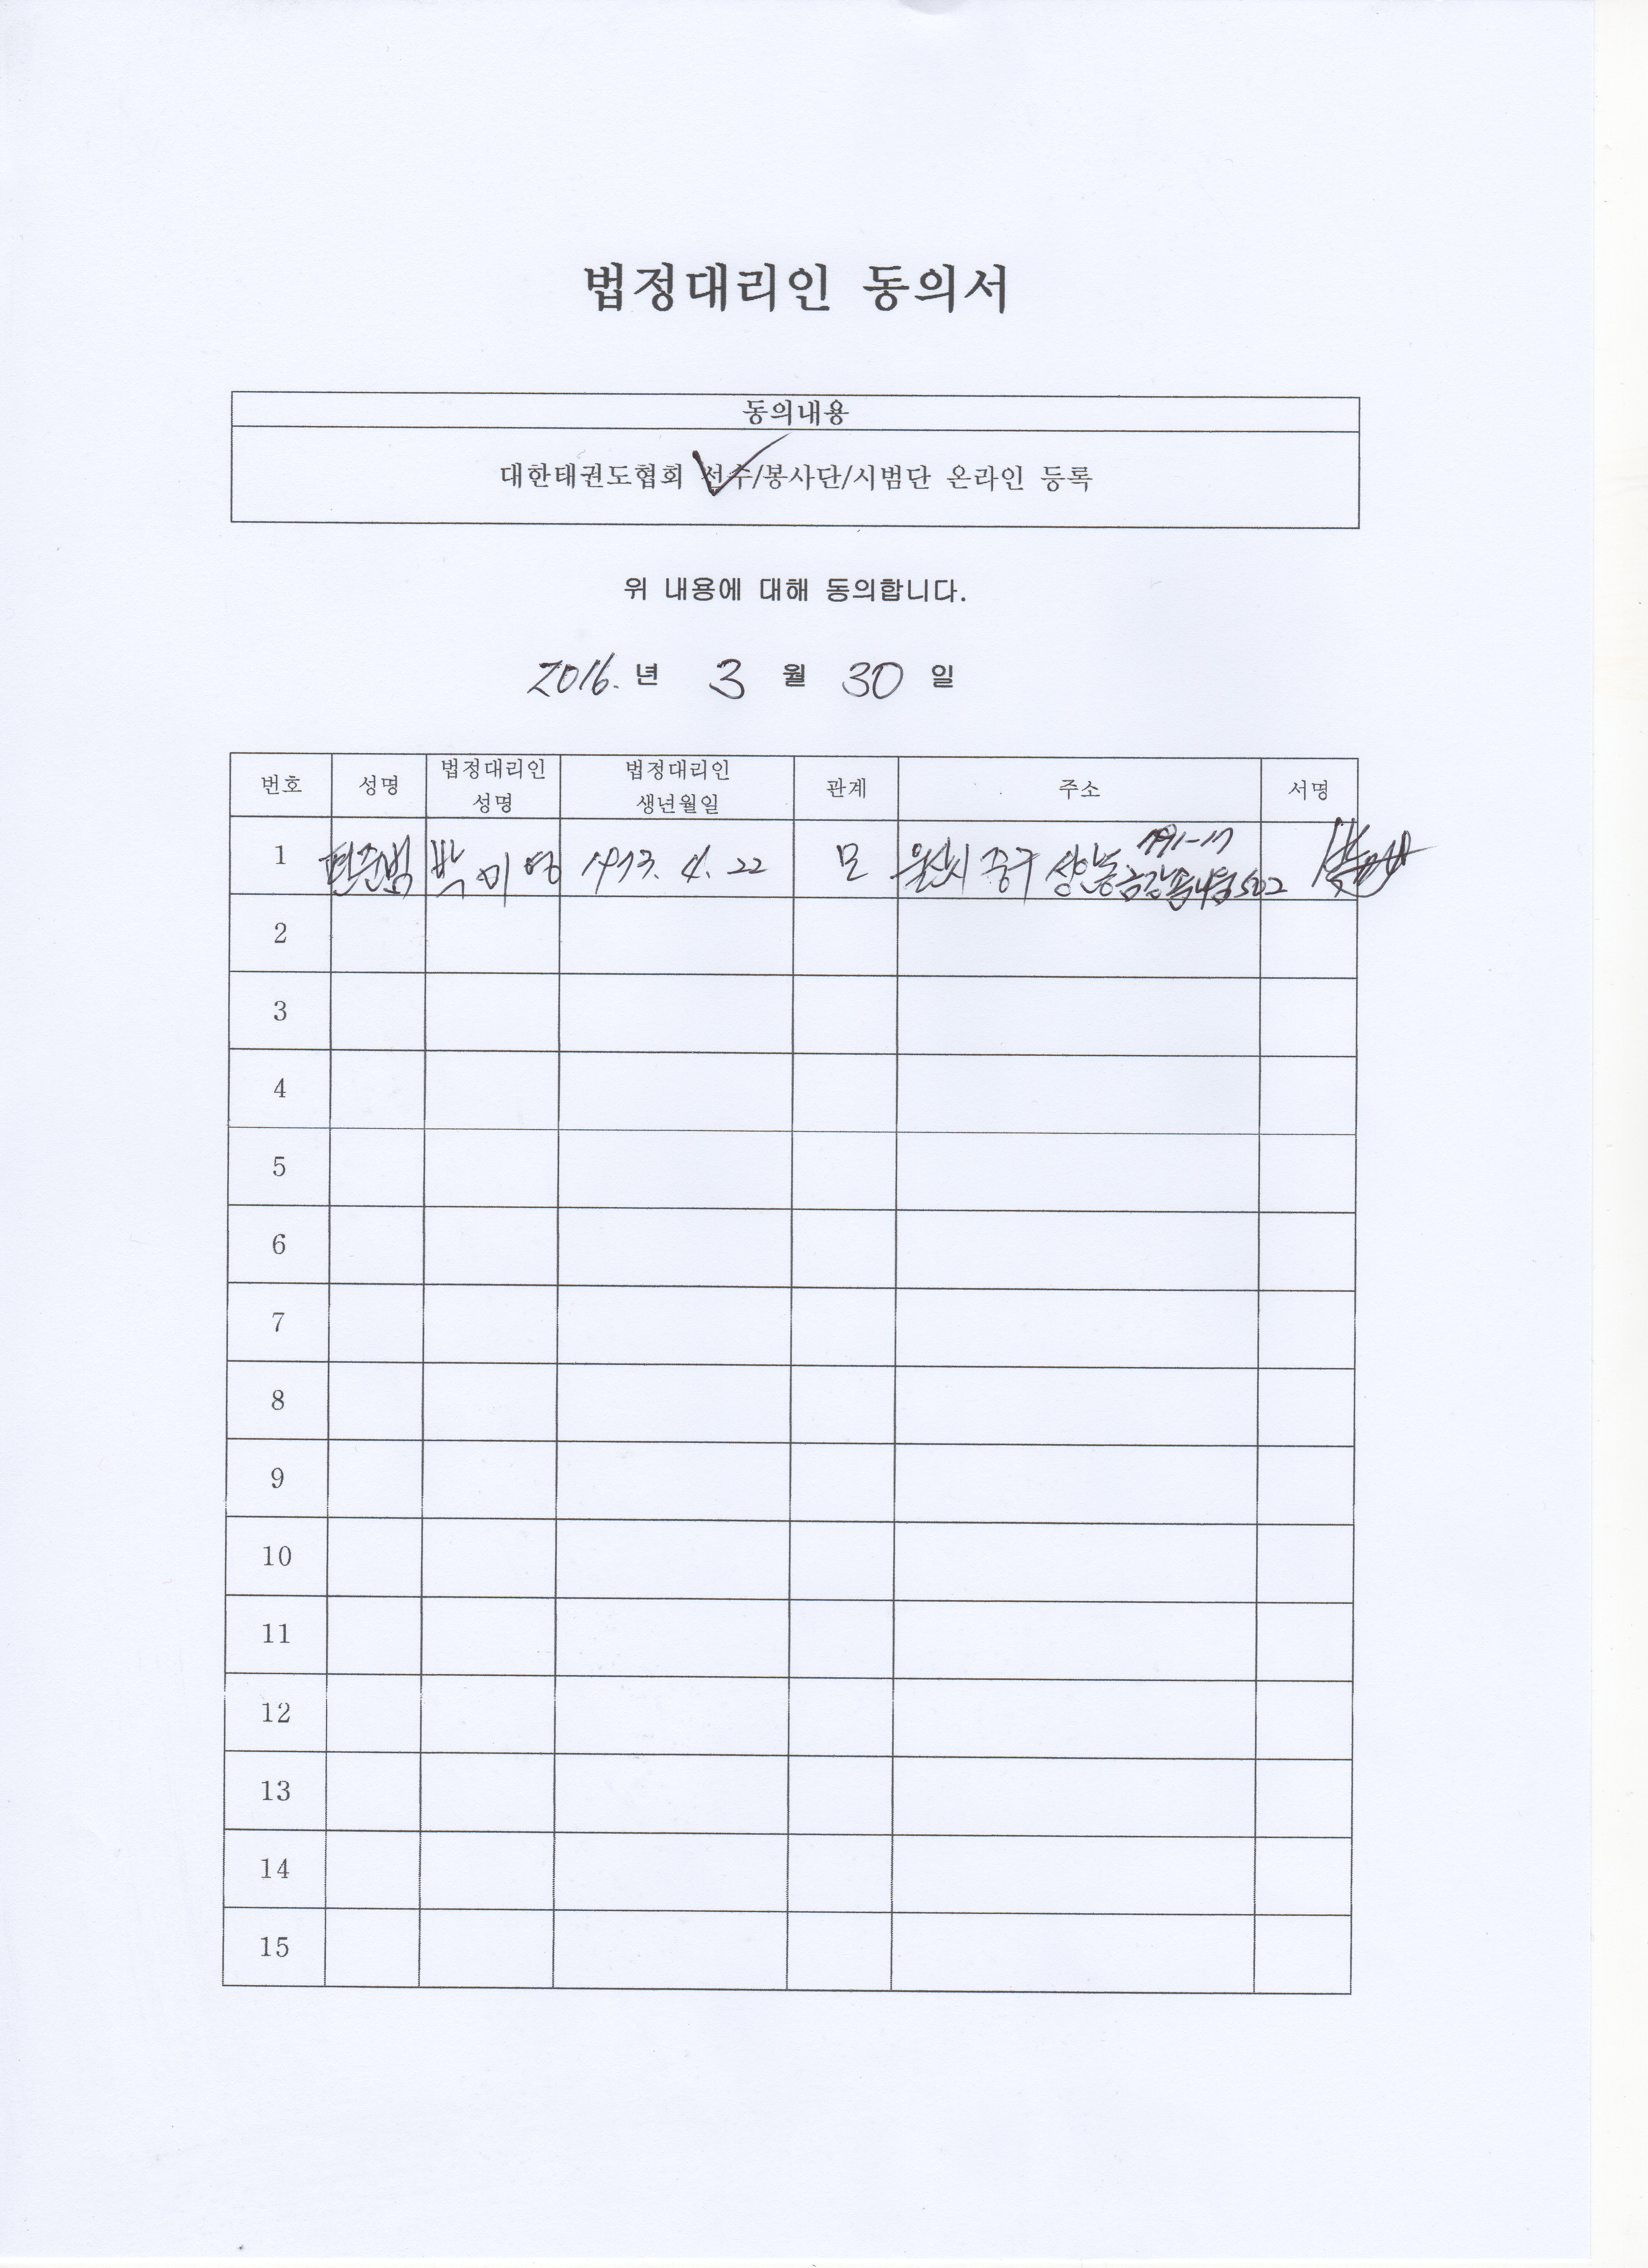 법정대리인 동의서
동의내용
대한태권도협회 선수/봉사단/시범단 온라인 등록
위 내용에 대해 동의합니다.
2016. 년 3 월 30 일
번호 성명 법정대리인 성명 법정대리인 생년월일 관계 주소 서명
1 편준범 박미영 1973. 4. 22 모 울산시 중구 상안동 502
2
3
4
5
6
7
8
9
10
11
12
13
14
15